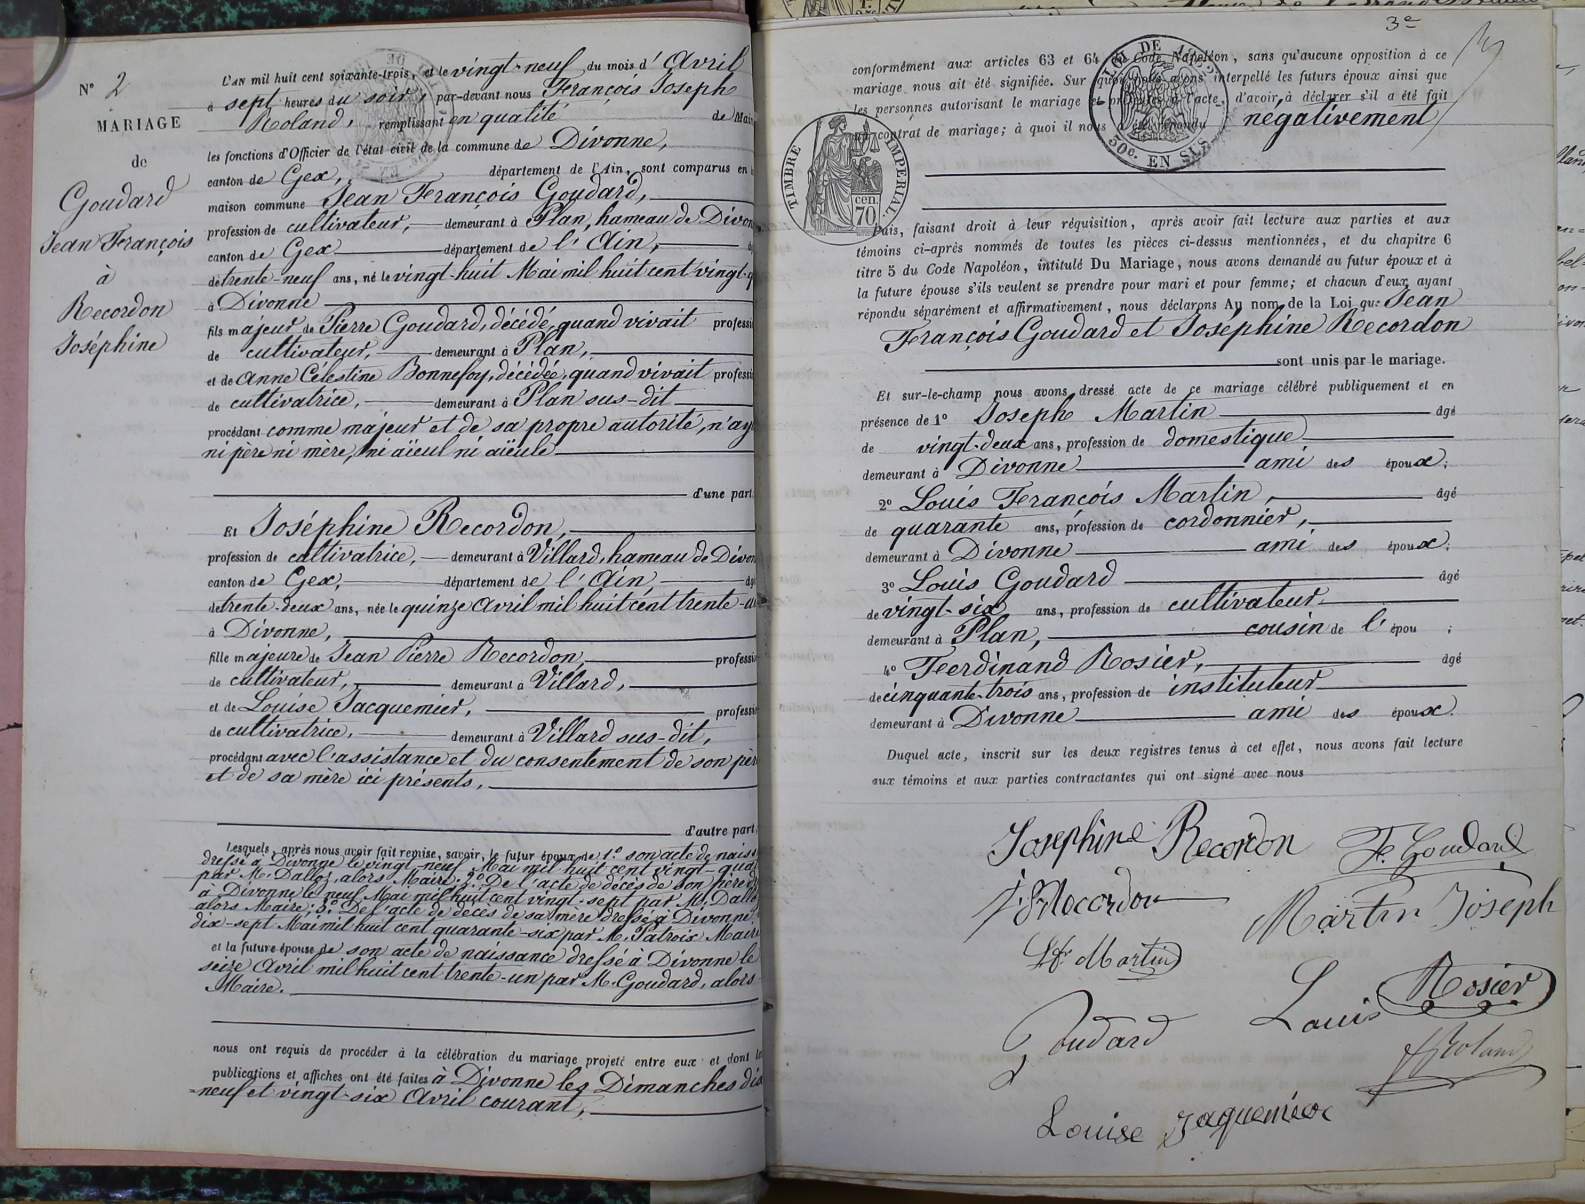 Nº 2
MARIAGE
de
Goudard
Jean François
à
Recordon
Joséphine
L'AN mil huit cent soixante-trois, et le vingt-neuf du mois d'Avril
à sept heures du soir, par-devant nous François Joseph
Roland, remplissant en qualité de Mai
les fonctions d'Officier de l'état civil de la commune de Divonne,
canton de Gex, département de l'Ain, sont comparus en
maison commune Jean François Goudard,
profession de cultivateur, demeurant à Plan, hameau de Divon
canton de Gex département de l'Ain,
de trente-neuf ans, né le vingt-huit Mai mil huit cent vingt-q
à Divonne
fils majeur de Pierre Goudard, décédé, quand vivait professi
de cultivateur, demeurant à Plan,
et de Anne Célestine Bonnefoy, décédée, quand vivait professi
de cultivatrice, demeurant à Plan sus-dit
procédant comme majeur et de sa propre autorité, n'ay
ni père ni mère, ni aïeul ni aïeule
d'une part.
Et Joséphine Recordon,
profession de cultivatrice, demeurant à Villard, hameau de Divon
canton de Gex, département de l'Ain âg
de trente-deux ans, née le quinze Avril mil huit cent trente-u
à Divonne,
fille majeure de Jean Pierre Recordon, professi
de cultivateur, demeurant à Villard,
et de Louise Jacquemier, professi
de cultivatrice, demeurant à Villard sus-dit,
procédant avec l'assistance et du consentement de son pèr
et de sa mère ici présents,
d'autre part,
Lesquels, après nous avoir fait remise, savoir, le futur époux de 1º son acte de naiss
dressé à Divonne le vingt-neuf Mai mil huit cent vingt-quat
par M. Dalloz, alors Maire; 2º De l'acte de décès de son père d
à Divonne le neuf Mai mil huit cent vingt-sept par M. Dallo
alors Maire; 3º De l'acte de décès de sa mère dressé à Divonne
dix-sept Mai mil huit cent quarante-six par M. Patroix Mair
et la future épouse de son acte de naissance dressé à Divonne le
seize Avril mil huit cent trente-un par M. Goudard, alors
Maire.
nous ont requis de procéder à la célébration du mariage projeté entre eux et dont le
publications et affiches ont été faites à Divonne les Dimanches dix
-neuf et vingt-six Avril courant,
3e
conformément aux articles 63 et 64 du Code Napoléon, sans qu'aucune opposition à ce
mariage nous ait été signifiée. Sur quoi nous avons interpellé les futurs époux ainsi que
les personnes autorisant le mariage et présentes à l'acte, d'avoir à déclarer s'il a été fait
un contrat de mariage; à quoi il nous a été répondu négativement
50c. EN SUS
TIMBRE IMPÉRIAL
cen.
70
Puis, faisant droit à leur réquisition, après avoir fait lecture aux parties et aux
témoins ci-après nommés de toutes les pièces ci-dessus mentionnées, et du chapitre 6
titre 5 du Code Napoléon, intitulé Du Mariage, nous avons demandé au futur époux et à
la future épouse s'ils veulent se prendre pour mari et pour femme; et chacun d'eux ayant
répondu séparément et affirmativement, nous déclarons Au nom de la Loi que Jean
François Goudard et Joséphine Recordon
sont unis par le mariage.
Et sur-le-champ nous avons dressé acte de ce mariage célébré publiquement et en
présence de 1º Joseph Martin âgé
de vingt-deux ans, profession de domestique
demeurant à Divonne ami des époux;
2º Louis François Martin, âgé
de quarante ans, profession de cordonnier,
demeurant à Divonne ami des époux;
3º Louis Goudard âgé
de vingt-six ans, profession de cultivateur
demeurant à Plan, cousin de l'épou ;
4º Ferdinand Rosier, âgé
de cinquante-trois ans, profession de instituteur
demeurant à Divonne ami des époux.
Duquel acte, inscrit sur les deux registres tenus à cet effet, nous avons fait lecture
aux témoins et aux parties contractantes qui ont signé avec nous
Josephine Recordon F. Goudard
Recordon Martin Joseph
Martin
Rosier
Goudard Louis
Roland
Louise Jaquemier